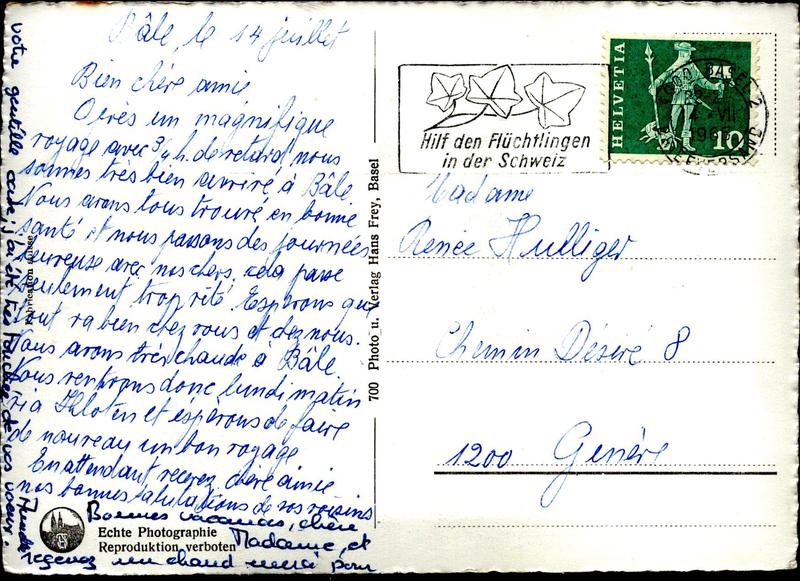 Bâle, le 14 juillet
Bien chère amie
Après un magnifique
voyage avec 3/4 h. de retard nous
sommes très bien arrivé à Bâle
Nous avons tous trouvé en bonne
santé et nous passons des journées
heureuse avec nos chers. cela passe
seulement trop vite. Espérons que
tout va bien chez vous et chez nous.
Nous avons très chaude à Bâle.
Nous rentrons donc lundi matin
via Kloten et espérons de faire
de nouveau un bon voyage
En attendant recevez chère amie
nos bonnes salutations de vos voisins
Bonnes vacances, chère
Madame, et
recevez un chaud merci pour
votre gentille carte; j'ai été très touchée de vos voeux.
Fabrication suisse
Echte Photographie
Reproduktion verboten
700 Photo u. Verlag Hans Frey, Basel
Hilf den Flüchtlingen
in der Schweiz
HELVETIA
10
4000 BASEL 2
VII
BRIEFVERSAND
Madame
Renée Hulliger
Chemin Désiré 8
1200 Genève